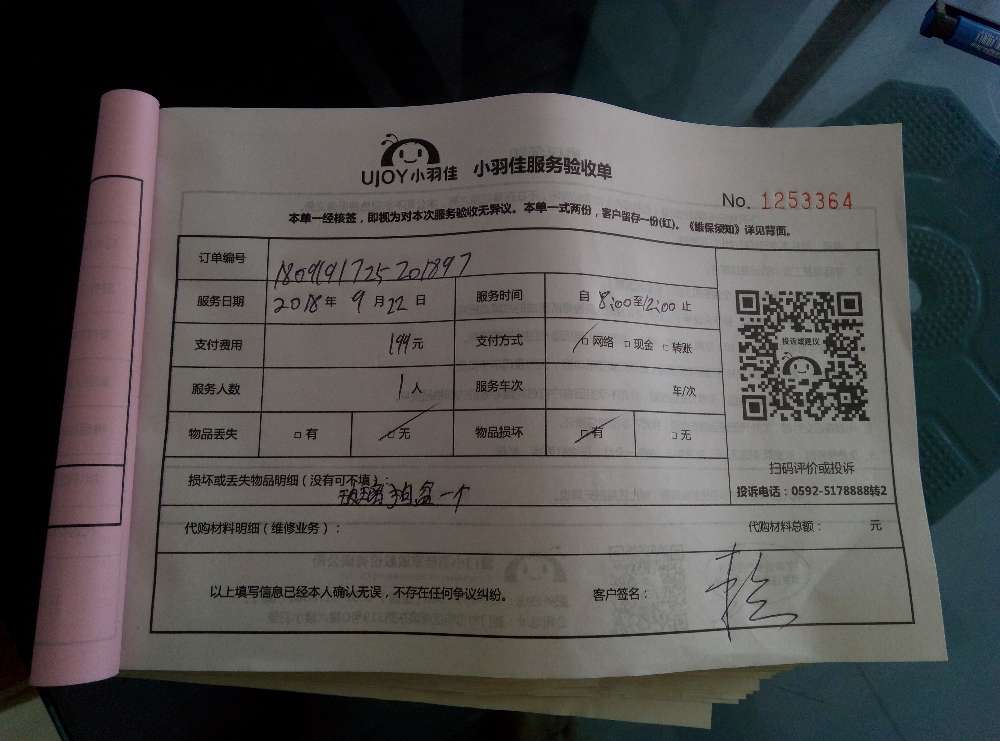 UJOY小羽佳 小羽佳服务验收单
No. 1253364
本单一经核签，即视为对本次服务验收无异议。本单一式两份，客户留存一份(红)。《维保须知》详见背面。
订单编号 1809191725201897
服务日期 2018年9月22日 服务时间 自8:00至12:00止
支付费用 144元 支付方式 □网络 □现金 □转账
服务人数 1人 服务车次 车/次
物品丢失 □有 □无 物品损坏 □有 □无
投诉或建议
扫码评价或投诉
投诉电话：0592-5178888转2
损坏或丢失物品明细（没有可不填）：
盒一个
代购材料明细（维修业务）： 代购材料总额： 元
以上填写信息已经本人确认无误，不存在任何争议纠纷。 客户签名：